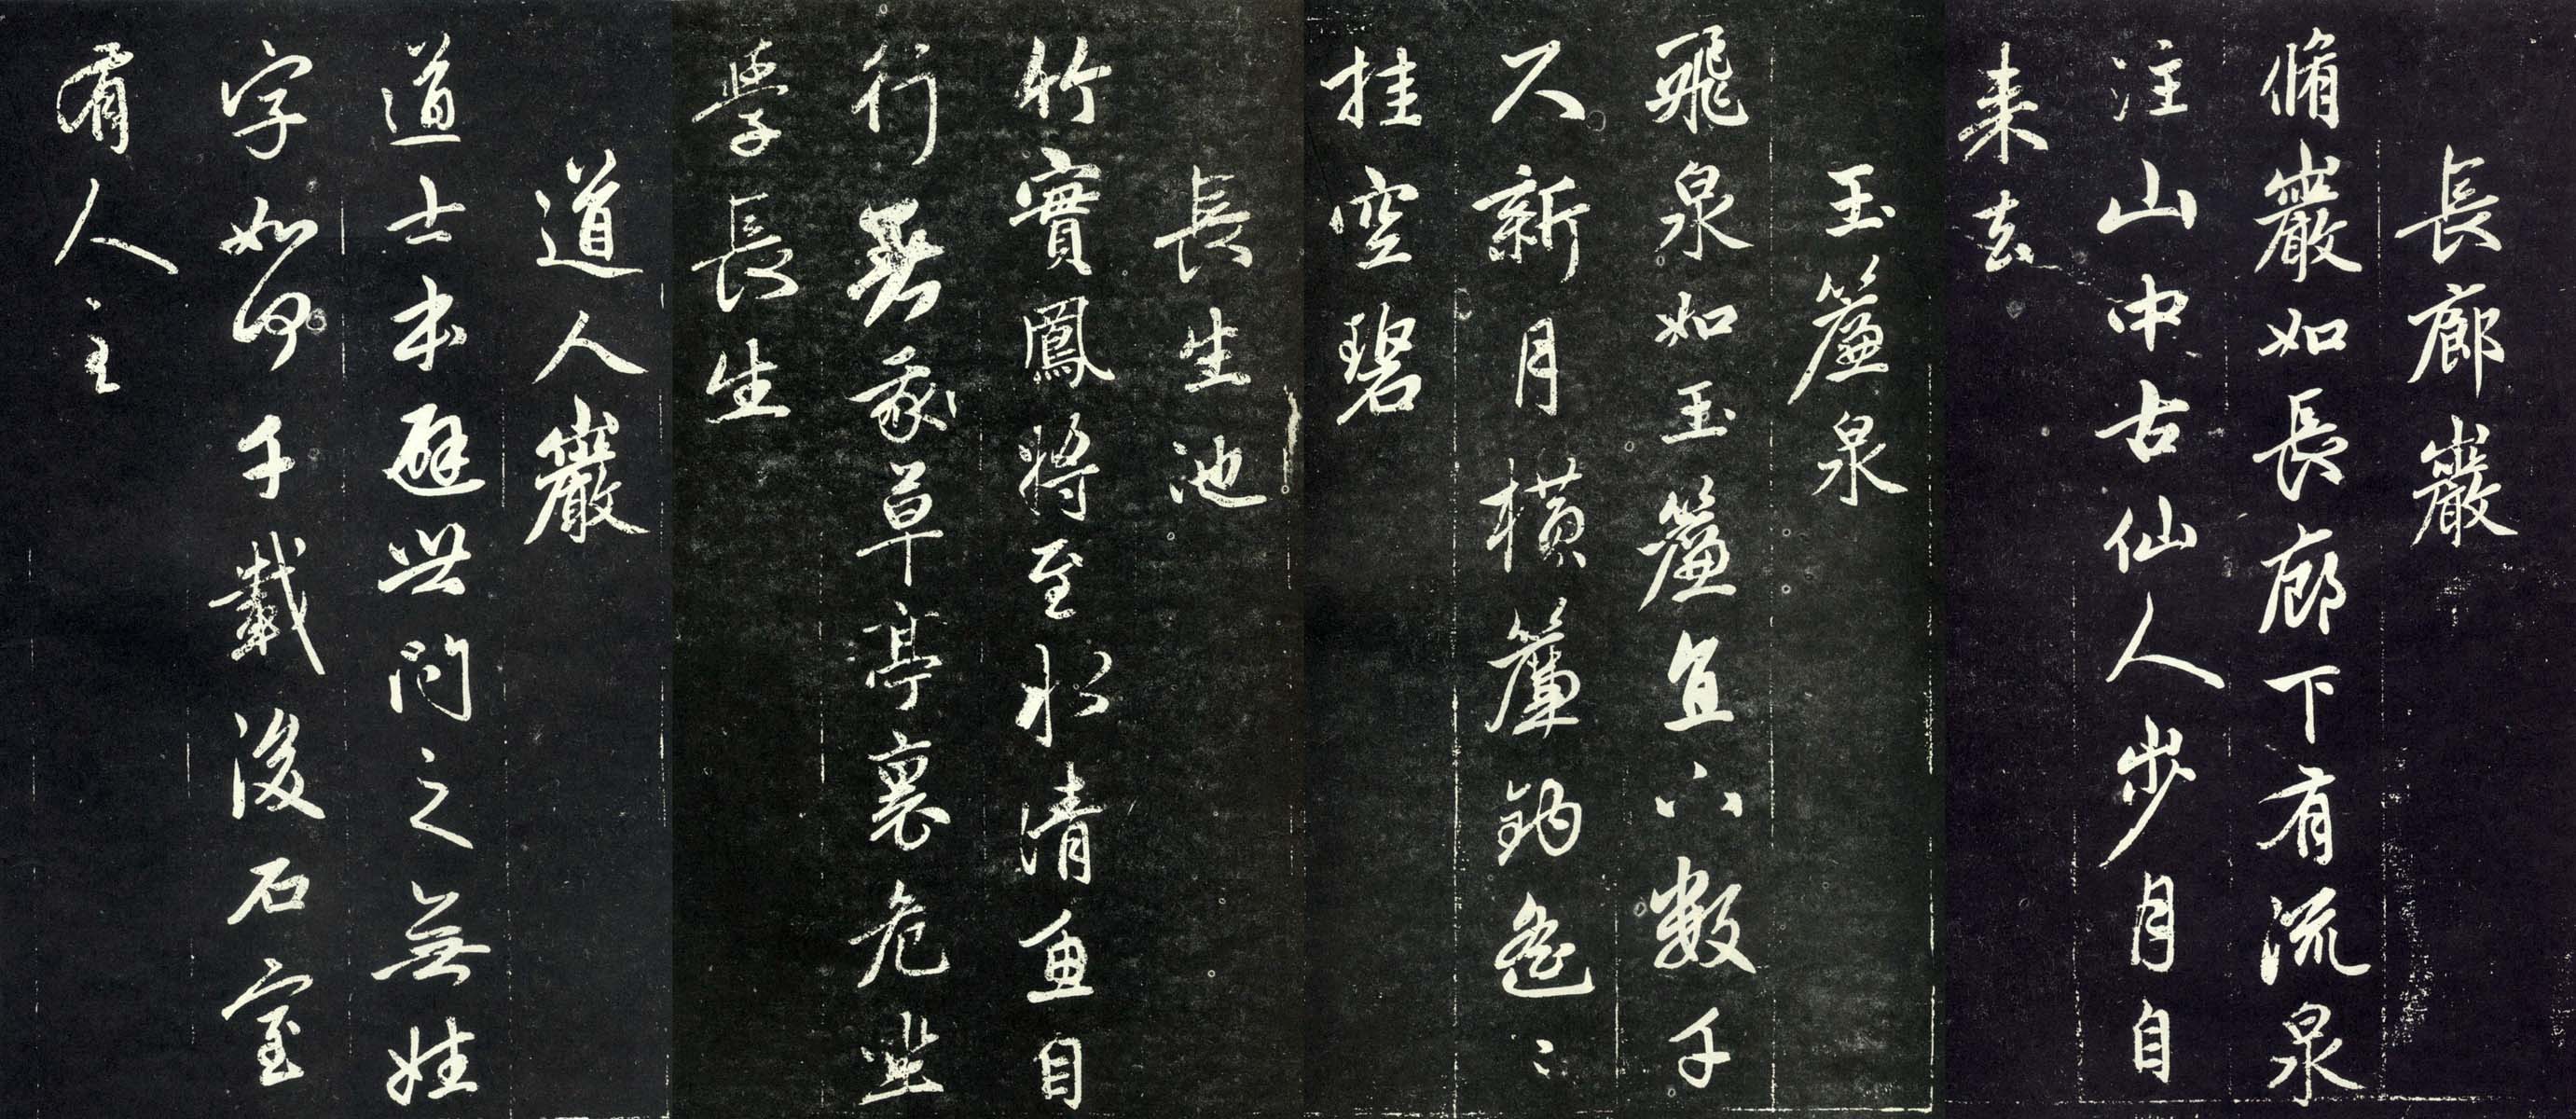 長廊巖
脩巖如長廊下有流泉
注山中古仙人步月自
来去
玉簾泉
飛泉如玉簾直下數千
尺新月橫簾鈎遙〻
挂空碧
長生池
竹實鳳將至水清魚自
行無窮草亭裏危坐
學長生
道人巖
道士本避世問之無姓
字如何千載後石室
有人主